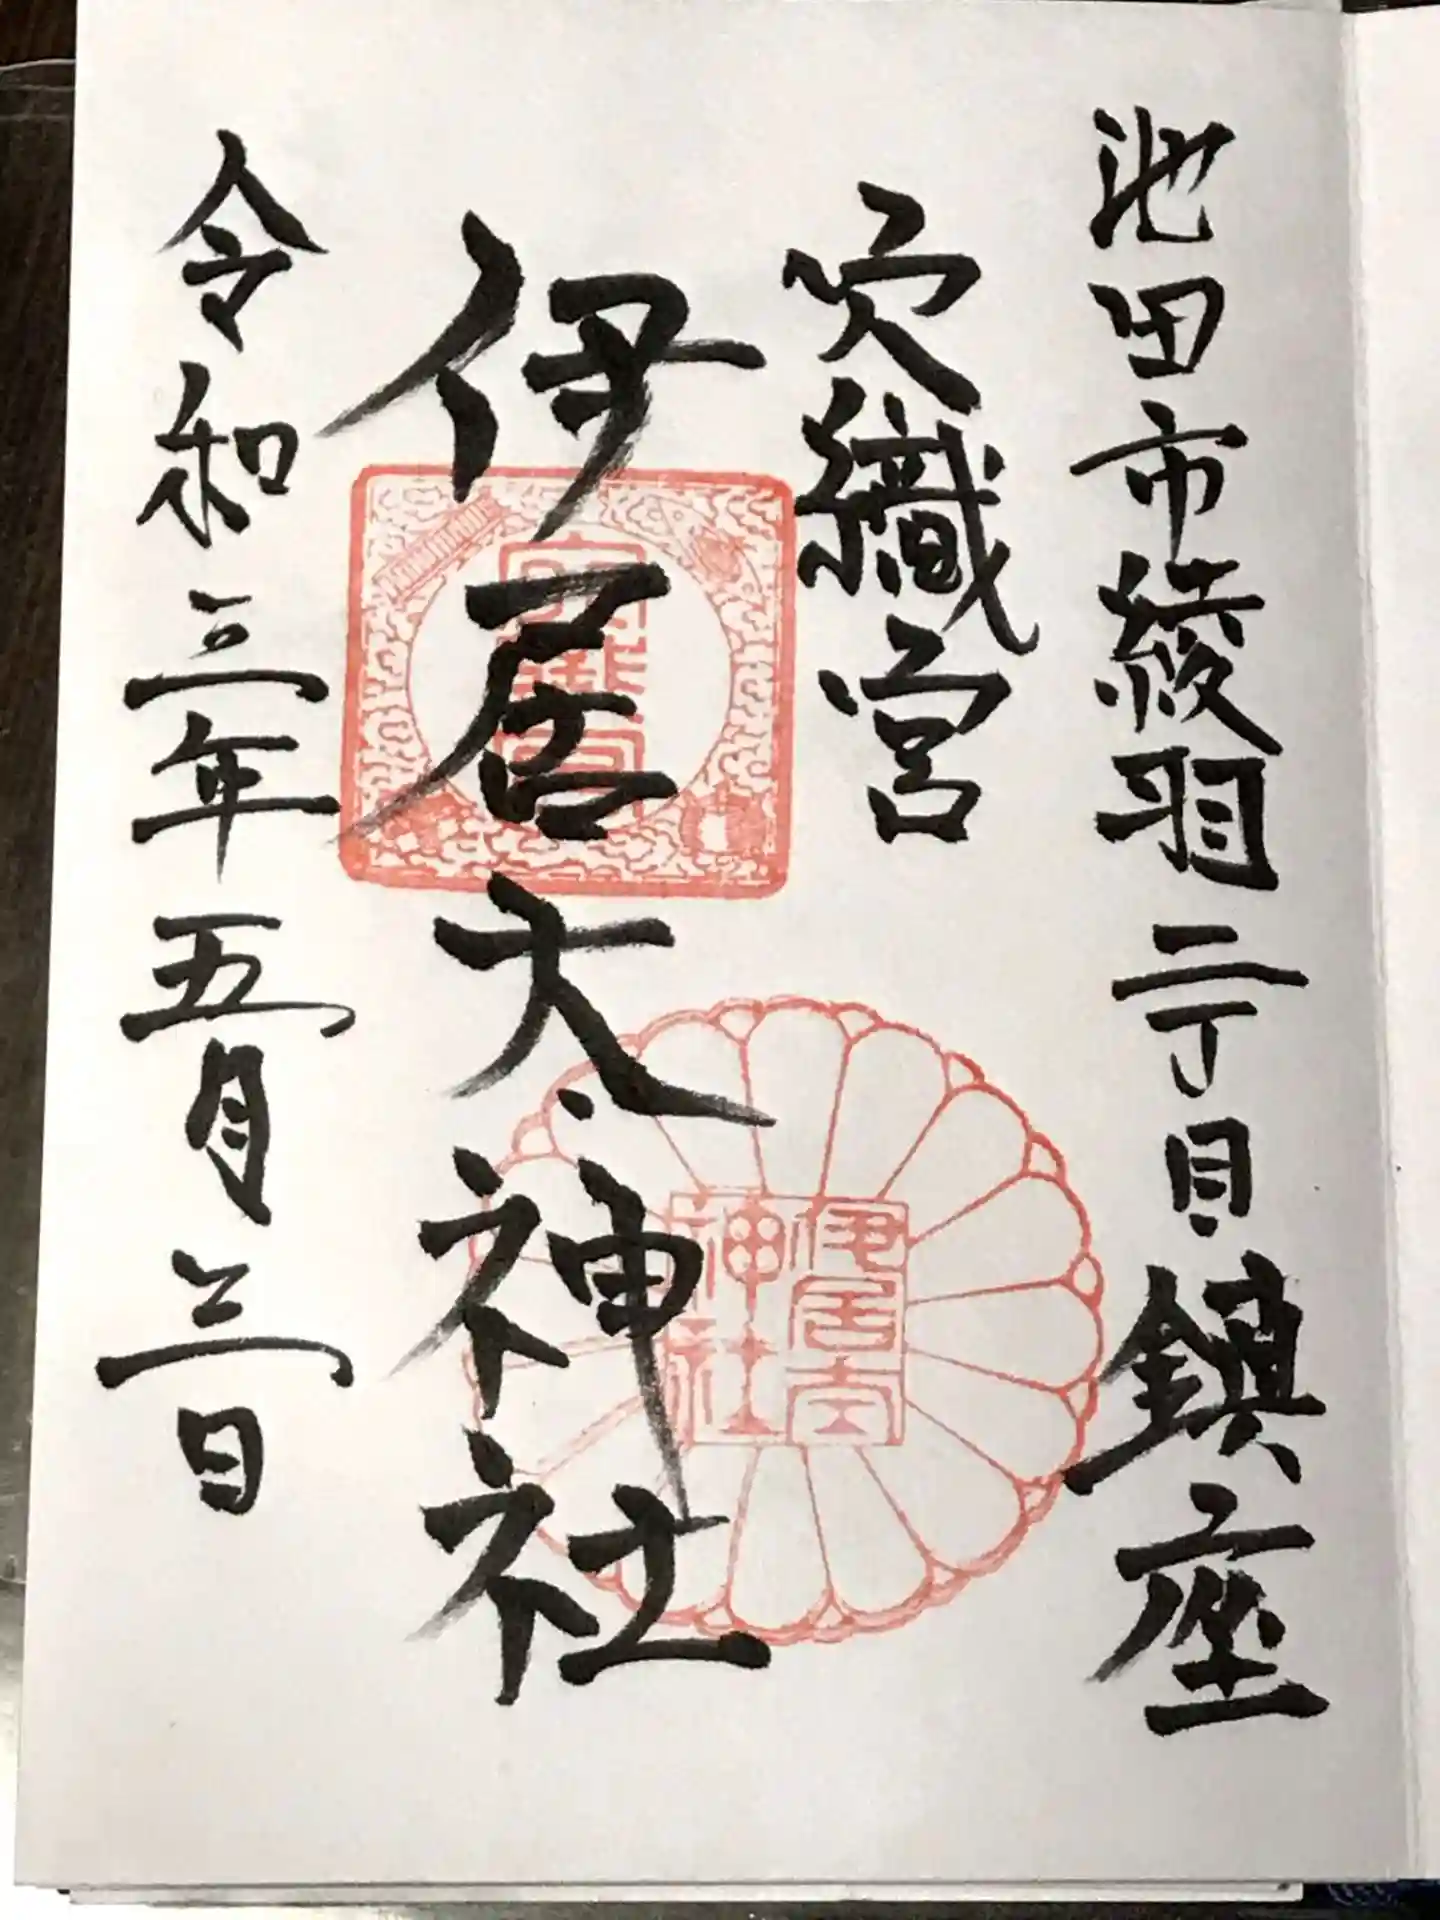 池田市綾羽二丁目鎮座
穴織宮
伊居太神社
令和三年五月三日
穴織宮
伊居太
神社